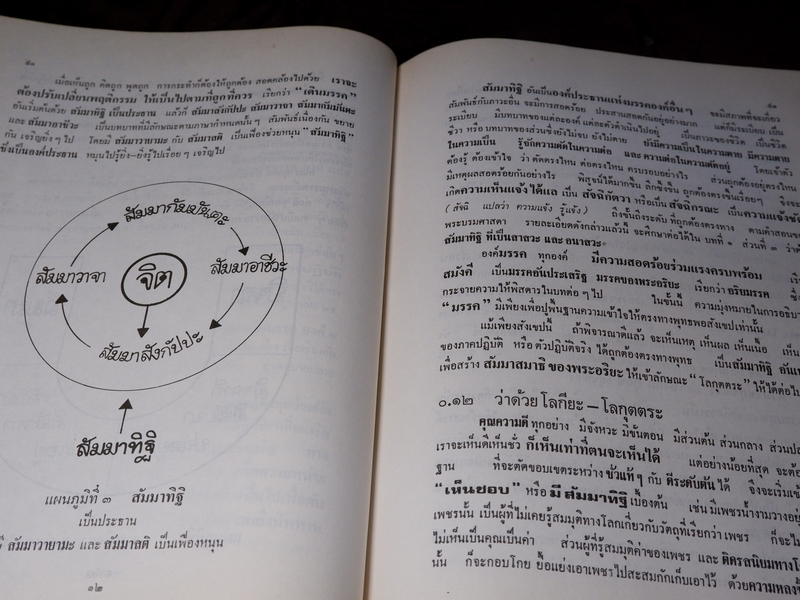 ๕๐
เมื่อเห็นถูก คิดถูก พูดถูก การกระทำก็ต้องให้ถูกต้อง สอดคล้องไปด้วย เราจะ
ต้องปรับเปลี่ยนพฤติกรรม ให้เป็นไปตามที่ถูกที่ควร เรียกว่า “เดินมรรค”
อันเริ่มต้นด้วย สัมมาทิฐิ เป็นประธาน แล้วก็ สัมมาสังกัปปะ สัมมาวาจา สัมมากัมมันตะ
และ สัมมาอาชีวะ เป็นบทบาทที่มีลักษณะตามภาษากำหนดนั้นๆ สัมพันธ์เนื่องกัน ขยาย
กัน เจริญยิ่งๆ ไป โดยมี สัมมาวายามะ กับ สัมมาสติ เป็นเฟืองช่วยหนุน “สัมมาทิฐิ”
ซึ่งเป็นองค์ประธาน หมุนไปรู้ยิ่ง–ยิ่งรู้ไปเรื่อยๆ เจริญไป
สัมมากัมมันตะ
สัมมาวาจา
จิต
สัมมาอาชีวะ
สัมมาสังกัปปะ
สัมมาทิฏฐิ
แผนภูมิที่ ๓ สัมมาทิฐิ
เป็นประธาน
มี สัมมาวายามะ และ สัมมาสติ เป็นเฟืองหนุน
๑๒
สัมมาทิฐิ อันเป็นองค์ประธานแห่งมรรคองค์อื่นๆ
สัมพันธ์กับภาวะอื่น จะมีการสอดร้อย ประสานสอดกันอยู่อย่างมาก
ระเบียบ มีบทบาทของแต่ละองค์ แต่ละตัวดำเนินไปอยู่ เป็นภาวะของชีวิต เป็นชีวิต
ชีวา หรือ บทบาทของส่วนซึ่งยังไม่จบ ยังไม่ตาย ยังมีความเป็นในความตาย มีความตาย
ในความเป็น รู้จักความตัดในความต่อ และ ความต่อในความตัดอยู่ โดยเจ้าตัว
ต้องรู้ ต้องเข้าใจ ว่า ตัดตรงไหน ต่อตรงไหน ครบรอบอย่างไร ส่วนถูกต้องอยู่ตรงไหน
มีเหตุผลสอดร้อยกันอย่างไร พิสูจน์ได้มากขึ้น ลึกซึ้งขึ้น ถูกต้องตรงขึ้นเรื่อยๆ จึงจะ
เกิดความเห็นแจ้ง ได้แก่ เป็น สัจฉิกัตวา หรือเป็น สัจฉิกรณะ เป็นความแจ้งชัด
(สัจฉิ แปลว่า ความแจ้ง รู้แจ้ง) ถึงขั้นถึงระดับ ที่ถูกต้องตรงทาง ตามคำสอนของ
พระบรมศาสดา รายละเอียดดังกล่าวแล้วนั้น จะศึกษาต่อได้ใน บทที่ ๑ ส่วนที่ ๓ ว่าด้วย
สัมมาทิฐิ ที่เป็นสาสวะ และ อนาสวะ
องค์มรรค ทุกองค์ มีความสอดร้อยร่วมแรงครบพร้อม
สมังคี เป็นมรรคอันประเสริฐ มรรคของพระอริยะ เรียกว่า อริยมรรค
กระจายความให้พิสดารในบทต่อๆ ไป ในขั้นนี้ ความมุ่งหมายในการอธิบาย
“มรรค” มีเพียงเพื่อปูพื้นฐานความเข้าใจให้ตรงทางพุทธพอสังเขปเท่านั้น
แม้เพียงสังเขปนี้ ถ้าพิจารณาดีแล้ว จะเห็นเหตุ เห็นผล เห็นเนื้อ
ของภาคปฏิบัติ หรือ ตัวปฏิบัติจริง ได้ถูกต้องตรงทางพุทธ เป็นสัมมาทิฐิ
เพื่อสร้าง สัมมาสมาธิ ของพระอริยะ ให้เข้าลักษณะ “โลกุตตระ” ให้ได้ต่อไป
๐.๑๒ ว่าด้วย โลกียะ – โลกุตตระ
คุณความดี ทุกอย่าง มีจังหวะ มีขั้นตอน มีส่วนต้น ส่วนกลาง ส่วนปลาย
เราจะเห็นดีเห็นชั่ว ก็เห็นเท่าที่ตนจะเห็นได้ แต่อย่างน้อยที่สุด จะต้อง
ฐาน ที่จะตัดขอบเขตระหว่าง ชั่วแท้ๆ กับ ดีระดับต้น ได้ จึงจะเริ่มเข้า
“เห็นชอบ” หรือ มี สัมมาทิฐิ เบื้องต้น เช่น มีเพชรน้ำงามวางอยู่
เพชรนั้น เป็นผู้ที่ไม่เคยรู้สมมุติทางโลกเกี่ยวกับวัตถุที่เรียกว่า เพชร ก็จะไม่
ไม่เห็นเป็นคุณเป็นค่า ส่วนผู้ที่รู้สมมุติค่าของเพชร และ ติดรสนิยมทางโลก
นั้น ก็จะกอบโกย ยื้อแย่งเอาเพชรไปสะสมกักเก็บเอาไว้ ด้วยความหลง